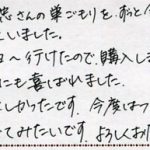 悠さんの巣ごもりを、ずっと
いました。
〜行けたので、購入しま
にも喜ばれました。
しかったです。今度はつ
てみたいです。よろしくお